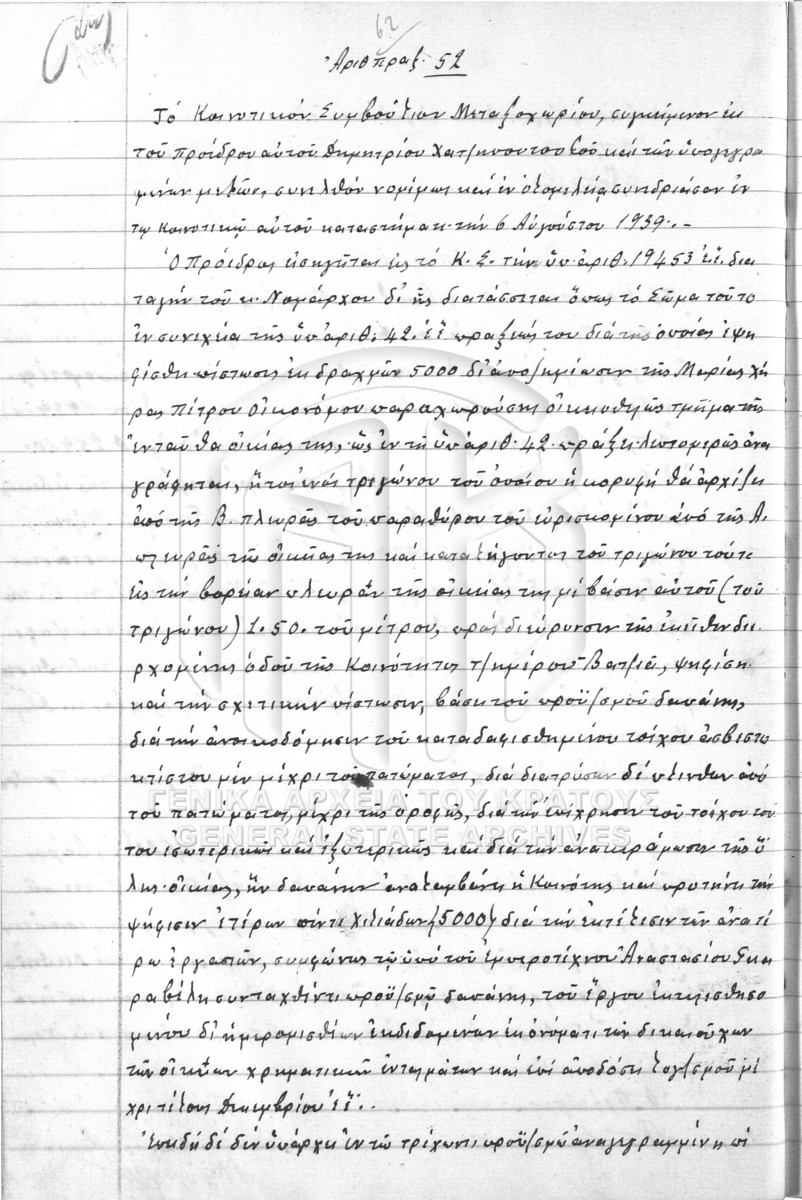 62
Ἀριθ πραξ. 52
Τό Κοινοτικόν Συμβούλιον Μεταξοχωρίου, συγκείμενον ἐκ
τοῦ προέδρου αὐτοῦ Δημητρίου Χατζηπουτουβοῦ καί τῶν ὑπογεγρα
μένων μελῶν, συνελθόν νομίμως καί ἐν ὁλομελείᾳ συνεδρίασαν ἐν
τῳ Κοινοτικῷ αὐτοῦ καταστήματι τήν 6 Αὐγούστου 1939.-
Ὁ Πρόεδρος εἰσηγεῖται εἰς τό Κ. Σ. τήν ὑπ. ἀριθ. 19453 ἐ.ἔ. δια
ταγήν τοῦ κ. Νομάρχου δι' ἧς διατάσσεται ὅπως τό Σῶμα τοῦτο
ἐν συνεχείᾳ τῆς ὑπ' ἀριθ. 42 ἐ.ἔ. πράξεώς του διά τῆς ὁποίας ἐψη
φίσθη πίστωσις ἐκ δραχμῶν 5000 δι' ἀποζημίωσιν τῆς Μαρίας χή
ρας Πέτρου Οἰκονόμου παραχωρούσης οἰκειοθελῶς τμῆμα τῆς
ἐνταῦθα οἰκίας της, ὡς ἐν τῇ ὑπ' ἀριθ. 42 πράξει λεπτομερῶς ἀνα
γράφηται, ἤτοι ἑνός τριγώνου τοῦ ὁποίου ἡ κορυφή θά ἀρχίζει
ἀπό τῆς Β. πλευρᾶς τοῦ παραθύρου τοῦ εὑρισκομένου ἀπό τῆς Α.
πλευρᾶς τῆς οἰκίας της καί καταλήγοντος τοῦ τριγώνου τούτου
εἰς τήν βορείαν πλευράν τῆς οἰκίας της μέ βάσιν αὐτοῦ (τοῦ
τριγώνου) 1.50. τοῦ μέτρου, πρός διεύρυνσιν τῆς ἐκεῖθεν διε
ρχομένης ὁδοῦ τῆς Κοινότητος Βατζιᾶ, ψηφίσῃ
καί τήν σχετικήν πίστωσιν, βάσει τοῦ προϋ/σμοῦ δαπάνης,
διά τήν ἀνοικοδόμησιν τοῦ καταδαφισθησομένου τοίχου ἀσβεστο
κτίστου μέν μέχρι τοῦ πατώματος, διά δέ πλίνθων ἀπό
τοῦ πατώματος, μέχρι τῆς ὀροφῆς, διά τήν ἐπίχρησιν τοῦ τοίχου τού
του ἐσωτερικῶς καί ἐξωτερικῶς καί διά τήν ἀνακεράμωσιν τῆς ὅ
λης οἰκίας, ἥν δαπάνην ἀναλαμβάνει ἡ Κοινότης καί προτείνει τήν
ψήφισιν ἑτέρων πέντε χιλιάδων (5000) διά τήν ἐκτέλεσιν τῶν ἀνωτέ
ρω ἐργασιῶν, συμφώνως τῷ ὑπό τοῦ ἐμπειροτέχνου Ἀναστασίου Γκα
ραβέλη συνταχθέντι προϋ/σμῷ δαπάνης, τοῦ ἔργου ἐκτελεσθησο
μένου δι' ἡμερομισθίων ἐκδιδομένων ἐπ' ὀνόματι τῶν δικαιούχων
τῶν οἰκείων χρηματικῶν ἐνταλμάτων καί ἐπί ἀποδόσει λογ/σμοῦ μέ
χρι τέλους Δεκεμβρίου ἐ.ἔ..
Ἐπειδή δέ δέν ὑπάρχει ἐν τῷ τρέχοντι προϋ/σμῷ ἀναγεγραμμένη πί
ΓΕΝΙΚΑ ΑΡΧΕΙΑ ΤΟΥ ΚΡΑΤΟΥΣ
GENERAL STATE ARCHIVES